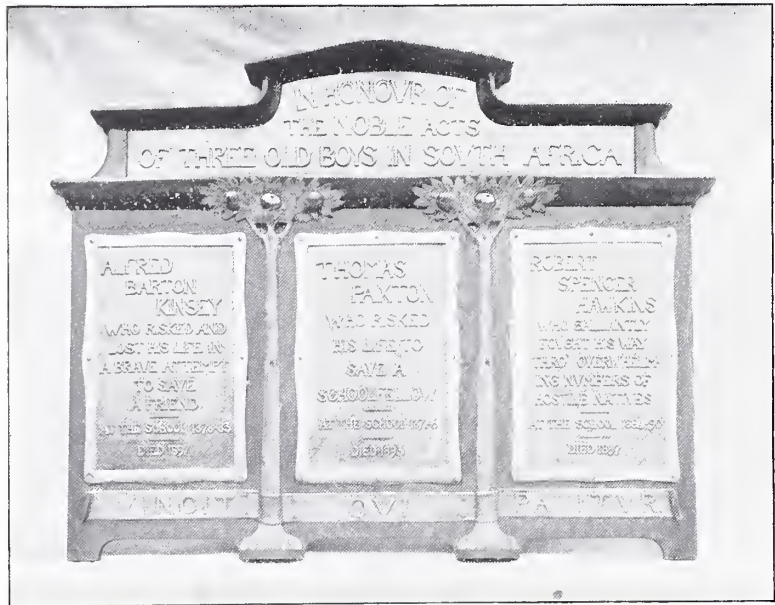 IN HONOVR OF
THE NOBLE ACTS
OF THREE OLD BOYS IN SOVTH AFRICA
ALFRED
BARTON
KINSEY
WHO RISKED AND
LOST HIS LIFE IN
A BRAVE ATTEMPT
TO SAVE
A FRIEND.
AT THE SCHOOL
DIED
THOMAS
PAXTON
WHO RISKED
HIS LIFE TO
SAVE A
SCHOOLFELLOW
AT THE SCHOOL
DIED
ROBERT
SPENCER
HAWKINS
WHO GALLANTLY
FOVGHT HIS WAY
THRO' OVERWHELM-
ING NVMBERS OF
HOSTILE NATIVES
AT THE SCHOOL
DIED
VINCIT QVI PATITVR